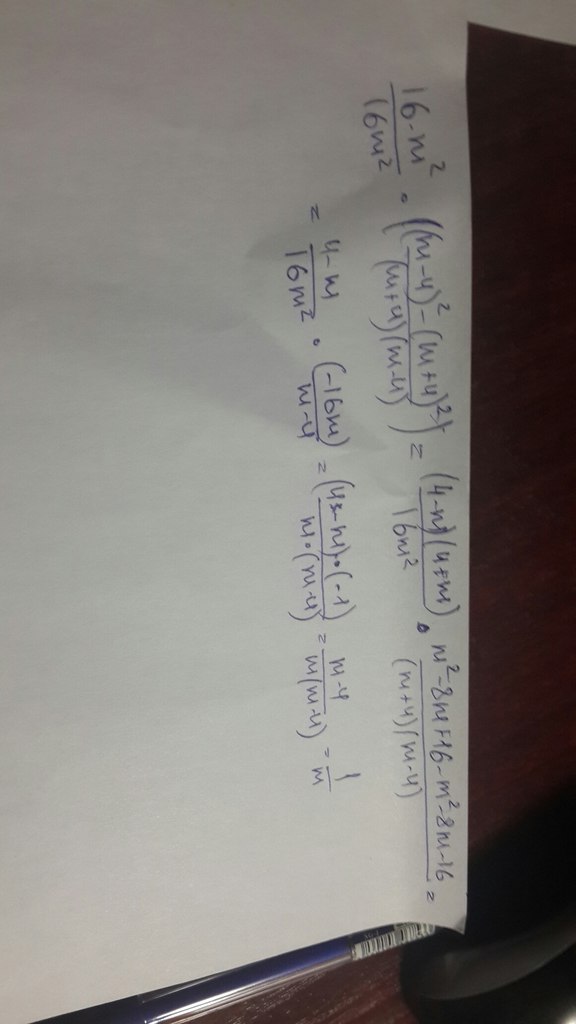 (16-m²)/(16m²) · (((m-4)²-(m+4)²)/((m+4)(m-4))) = ((4-m)(4+m))/(16m²) · (m²-8m+16-m²-8m-16)/((m+4)(m-4)) =
= (4-m)/(16m²) · (-16m)/(m-4) = ((4-m)·(-1))/(m·(m-4)) = (m-4)/(m(m-4)) = 1/m